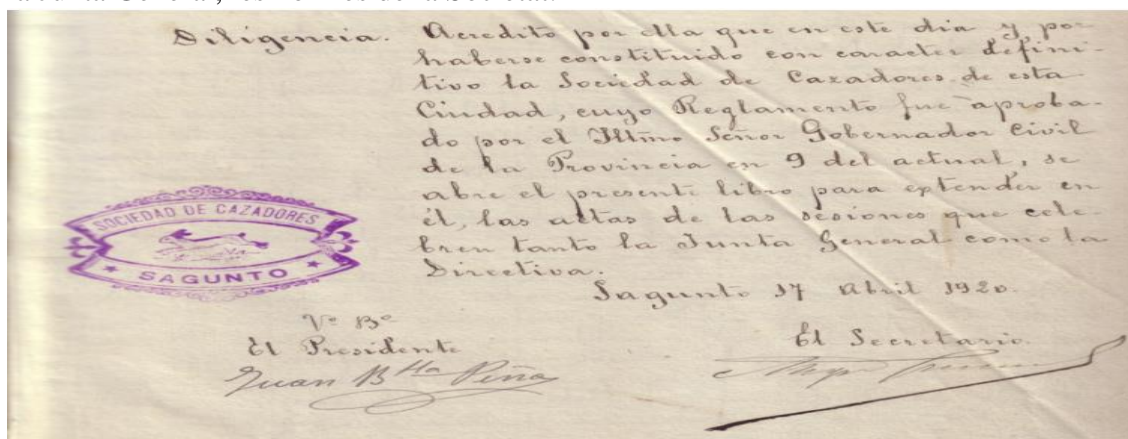 Diligencia. Acredito por ella que en este dia y por
haberse constituido con caracter defini-
tivo la Sociedad de Cazadores de esta
Ciudad, cuyo Reglamento fue aproba-
do por el Iltmo Señor Gobernador Civil
de la Provincia en 9 del actual, se
abre el presente libro para extender en
él, las actas de las sesiones que cele-
bren tanto la Junta General como la
Directiva.
SOCIEDAD DE CAZADORES
SAGUNTO
Sagunto 17 Abril 1920.
Vº Bº
El Presidente
Juan Bta Piña
El Secretario.